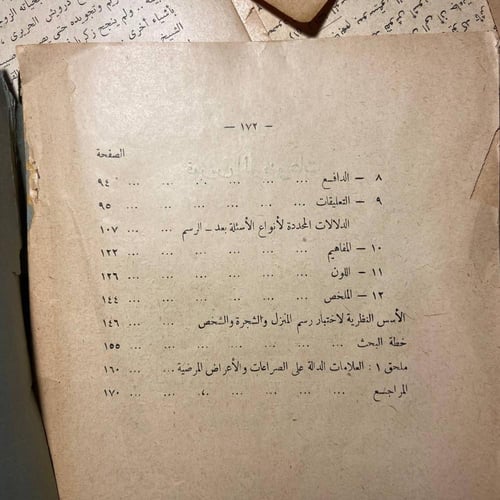 بأشياء أخرى
الشيخ
— ١٧٢ —
الصفحة
٨ — الدافع ... ... ... ... ... ٩٤
٩ — التعليقات ... ... ... ... ... ٩٥
الدلالات المحددة لأنواع الأسئلة بعد – الرسم ١٠٧
١٠ — المفاهيم ... ... ... ... ... ١٢٢
١١ — اللون ... ... ... ... ... ١٢٦
١٢ — الملخص ... ... ... ... ... ١٤٤
الأسس النظرية لاختبار رسم المنزل والشجرة والشخص ١٤٦
خطة البحث ... ... ... ... ... ... ١٥٥
ملحق ١ : العلامات الدالة على الصراعات والأعراض المرضية ... ... ١٦٠
المراجع ... ... ... ... ... ... ١٧٠